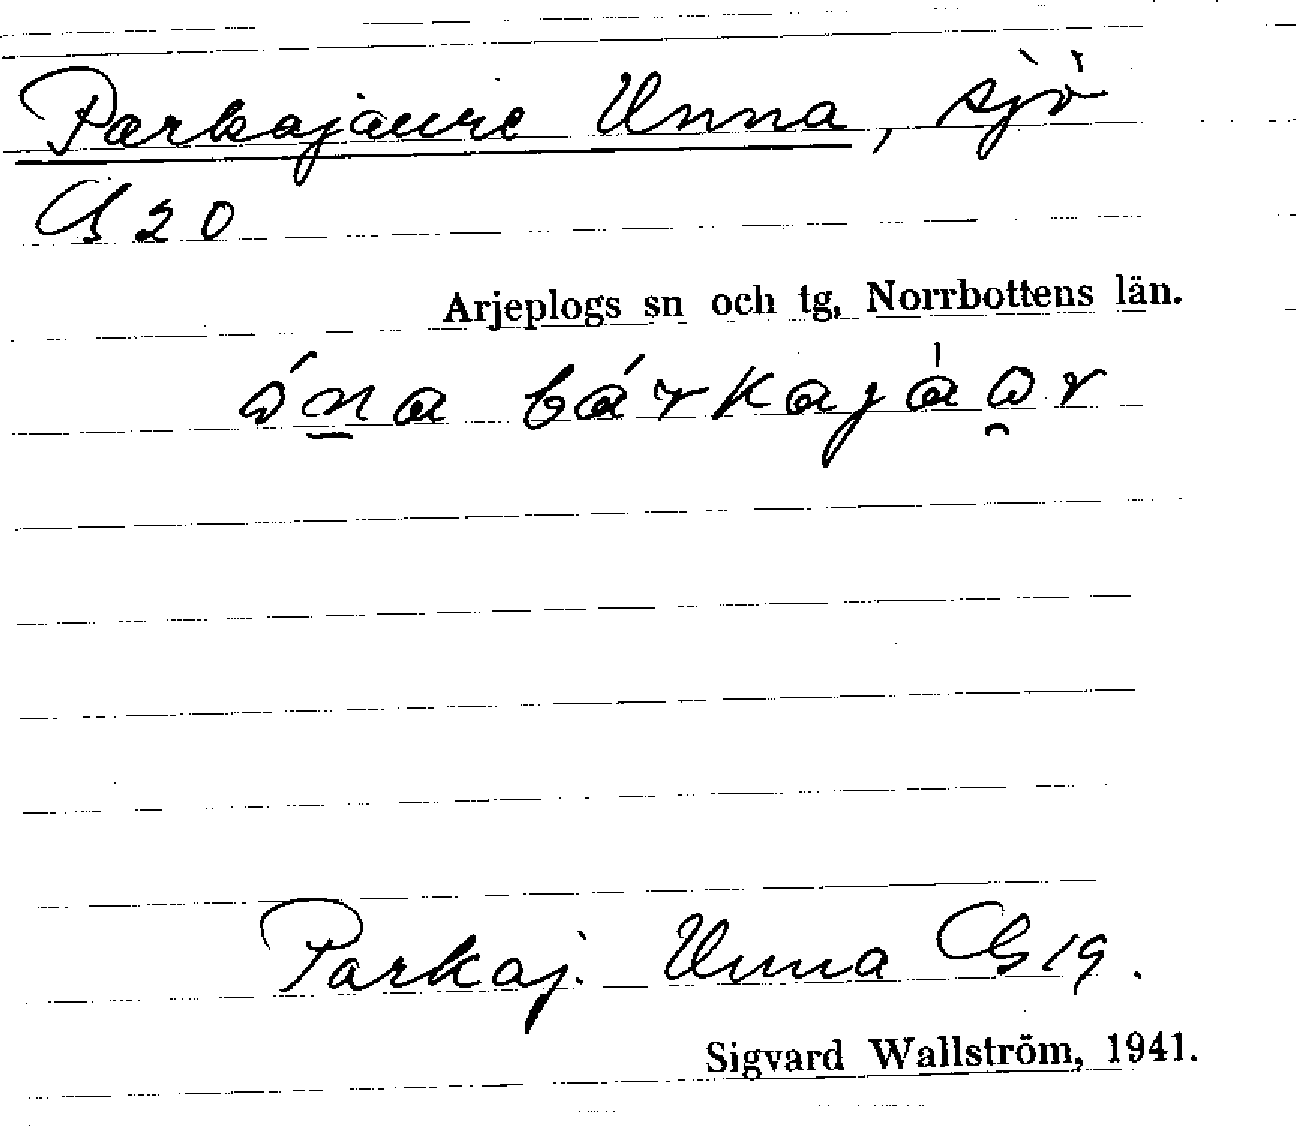 Parkajaure Unna, sjö
Cs 20
Arjeplogs sn och tg, Norrbottens län.
ó̱na bárkajáo̯r
Parkaj. Unna Cs 19.
Sigvard Wallström, 1941.